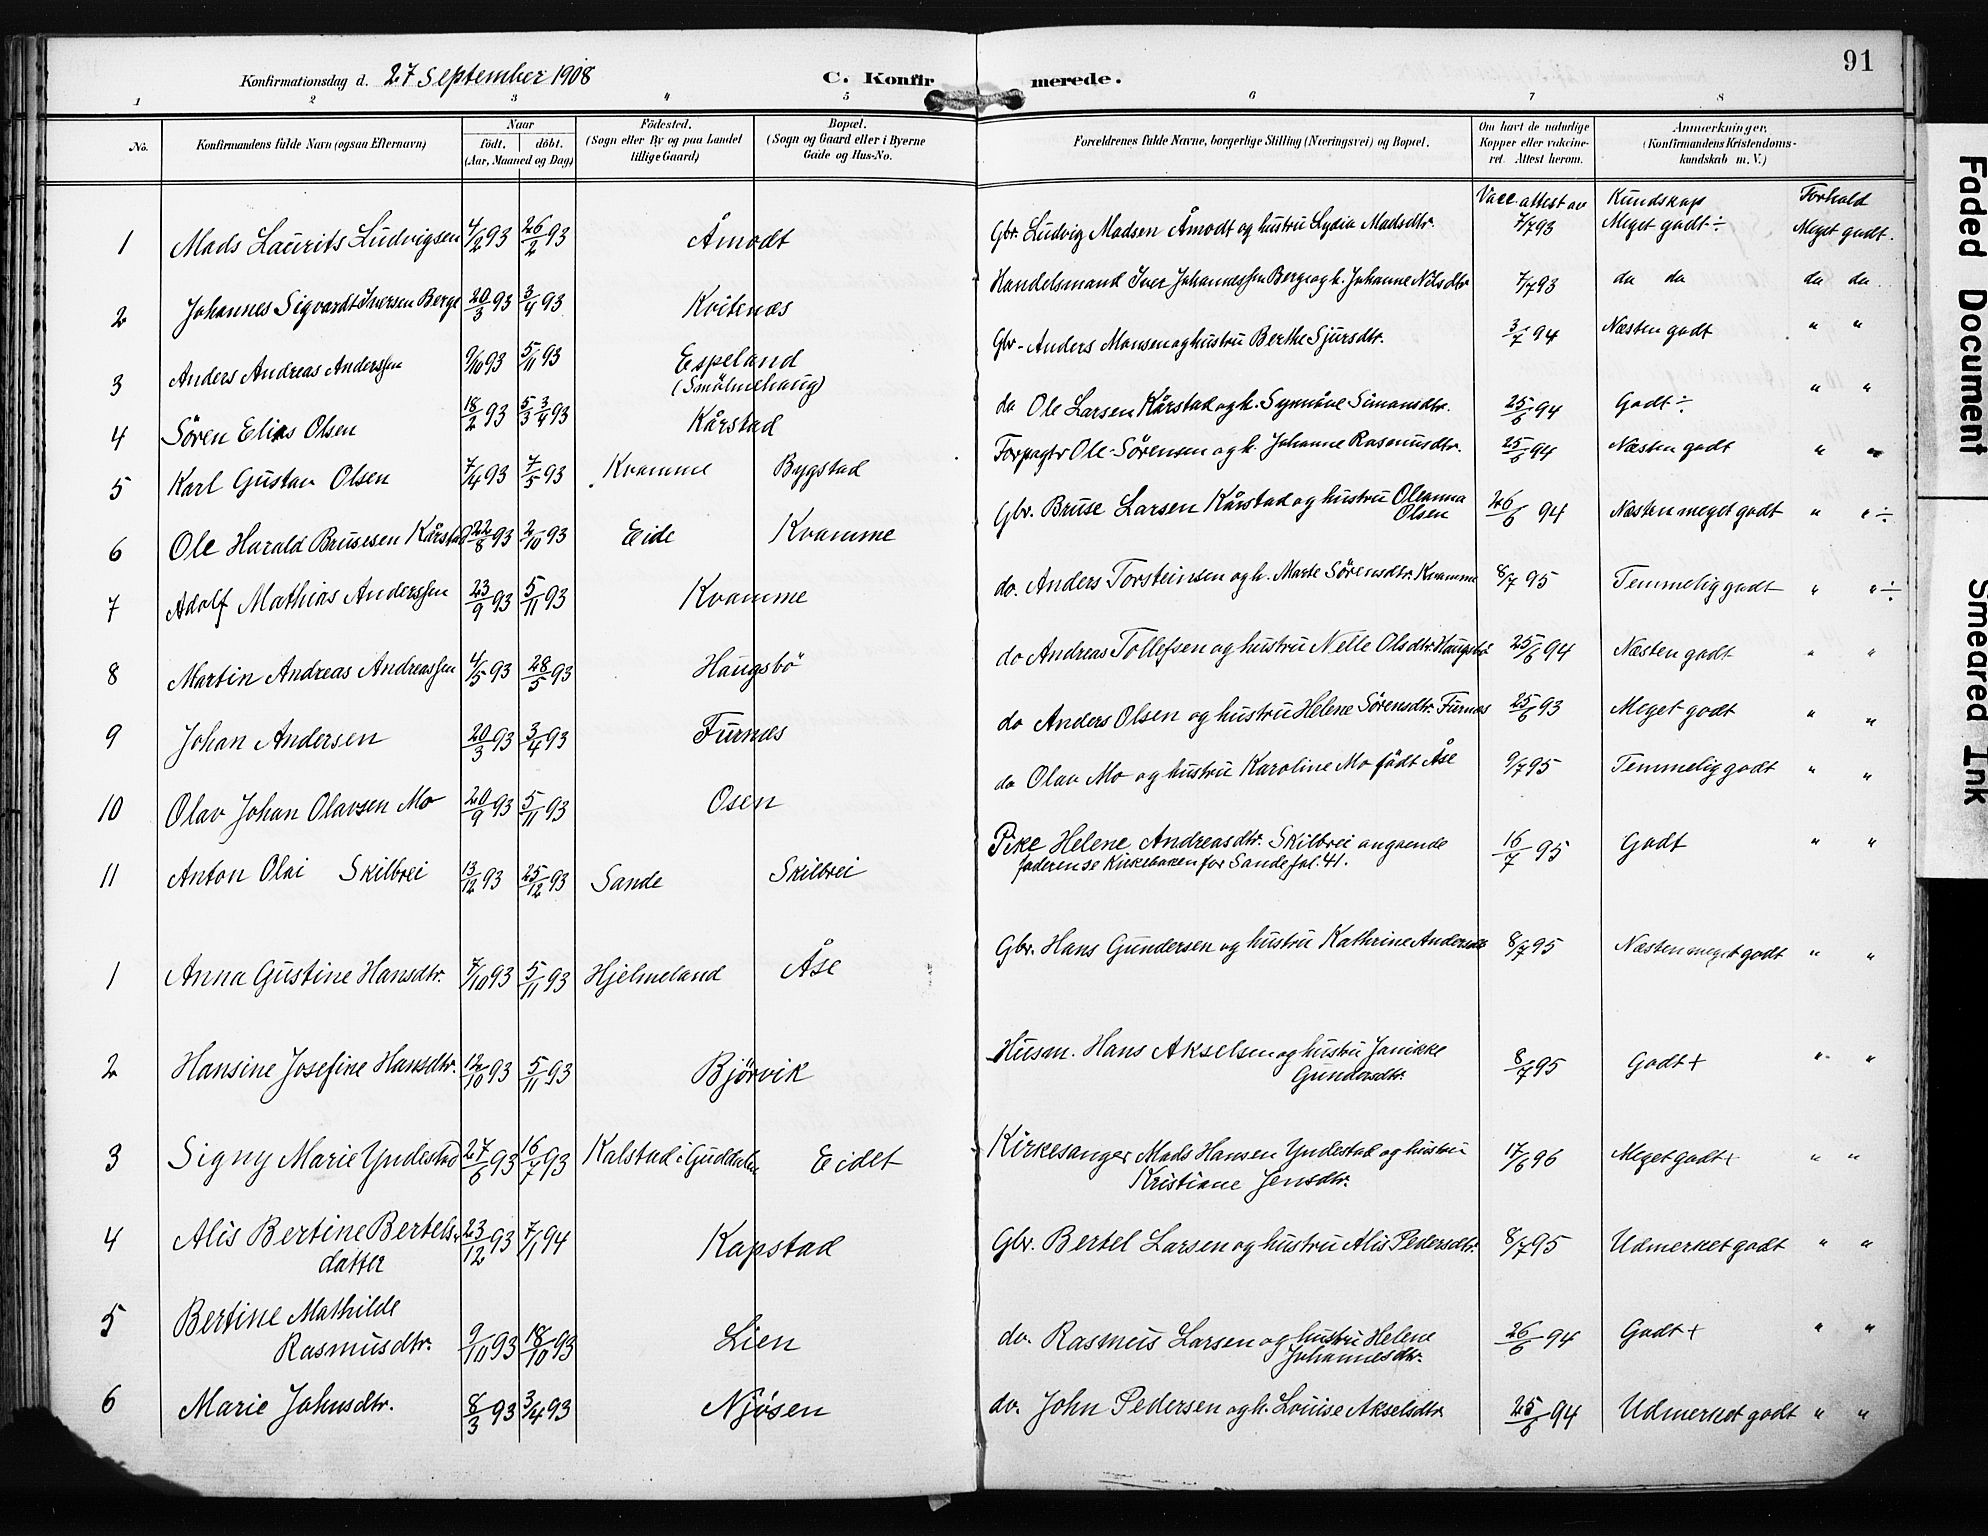 91
Konfirmationsdag d. 27 September 1908 C. Konfirmerede.
1 2 3 4 5 6 7 8
No. Konfirmandens fulde Navn (ogsaa Efternavn) Naar født, døbt. (Aar, Maaned og Dag) Fødested. (Sogn eller By og paa Landet tillige Gaard) Bopæl. (Sogn og Gaard eller i Byerne Gade og Hus-No. Forældrenes fulde Navne, borgerlige Stilling (Næringsvei) og Bopæl. Om havt de naturlige Kopper eller vakcineret. Attest herom. Anmærkninger. (Konfirmandens Kristendomskundskab m. V.)
Vacc. attest av Kundskap Forhold
1 Mads Laurits Ludvigsen 4/2 93 26/2 93 Åmodt Gbr. Ludvig Madsen Åmodt og hustru Lydia Madsdtr. 7/7 93 Meget godt ÷ Meget godt.
2 Johannes Sigvardt Iversen Berge 20/3 93 3/4 93 Kvitenæs Handelsmand Iver Johannessen Berge og h. Johanne Nilsdtr 7/7 93 do do do do
3 Anders Andreas Anderssen 9/10 93 5/11 93 Espeland Gbr. Anders Monsen og hustru Berthe Sjursdtr. 3/7 94 Næsten godt " "
4 Sören Elias Olsen 18/2 93 3/4 93 Kårstad do Ole Larsen Kårstad og h. Synnöve Simonsdtr. 25/6 94 Godt ÷ " "
5 Karl Gustav Olsen 7/4 93 7/5 93 Kvamme Bygstad Forpagtr Ole Sörensen og h. Johanne Rasmusdtr. 25/6 94 Næsten godt " "
6 Ole Harald Brusesen Kårstad 22/8 93 2/10 93 Eide Kvamme Gbr. Bruse Larsen Kårstad og hustru Oleanna Olsen 26/6 94 Næsten meget godt " " ÷
7 Adolf Mathias Anderssen 23/9 93 5/11 93 Kvamme do. Anders Torsteinsen og h. Marte Sörensdtr. Kvamme 8/7 95 Temmelig godt " " ÷
8 Martin Andreas Andreassen 4/5 93 28/5 93 Haugsbö do Andreas Tollefsen og hustru Nelle Olsdtr. Haugsbö 25/6 94 Næsten godt " "
9 Johan Andersen 20/3 93 3/4 93 Furnæs do Anders Olsen og hustru Helene Sörensdtr. Furnes 25/6 93 Meget godt " "
10 Olav Johan Olavsen Mo 20/9 93 5/11 93 Osen do Olav Mo og hustru Karoline Mo födt Åse 9/7 95 Temmelig godt " "
11 Anton Olai Skilbrei 13/12 93 25/12 93 Sande Skilbrei Pike Helene Andreasdtr. Skilbrei angaende faderen se Kirkeboken for Sande fol. 41. 16/7 95 Godt " "
1 Anna Gustine Hansdtr. 7/10 93 5/11 93 Hjelmeland Åse Gbr. Hans Gundersen og hustru Kathrine 8/7 95 Næsten meget godt " "
2 Hansine Josefine Hansdtr. 12/10 93 5/11 93 Bjørvik Husm. Hans Akselsen og hustru Janikke Gundersdtr. 8/7 95 Godt + " "
3 Signy Marie Yndestad 27/6 93 16/7 93 Kalstad i Guddalen Eidet Kirkesanger Mads Hansen Yndestad og hustru Kristiane Jensdtr. 17/6 96 Meget godt + " "
4 Alis Bertine Bertelsdatter 23/12 93 7/1 94 Kapstad Gbr. Bertel Larsen og hustru Alis Pedersdtr. 8/7 95 Udmerket godt " "
5 Bertine Mathilde Rasmusdtr. 9/10 93 18/10 93 Lien do. Rasmus Larsen og hustru Helene Johannesdtr. 26/6 94 Godt + " "
6 Marie Johnsdtr. 8/3 93 3/4 93 Njøsen do. John Pedersen og h. Louise Akselsdtr 25/6 94 Udmerket godt " "
Faded Document
Smeared Ink